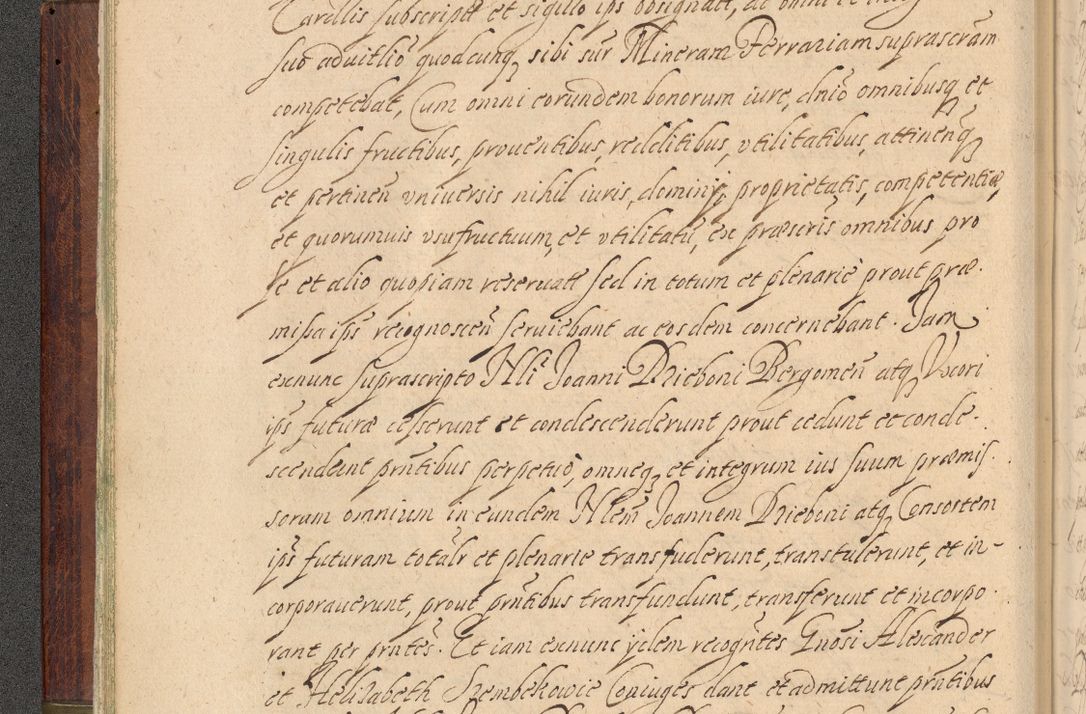 Carellis subscript et sigillo ips obsignatt, ac omni et
suo aduitlio quodcunq sibi sur Mineram Ferrariam suprascram
competebat, Cum omni eorundem bonorum iure, dnio omnibusq et
singulis fructibus, prouentibus, redditibus, vtilitatibus, attinenq
et pertinen vniuersis nihil iuris, dominij, proprietatis, competentiæ,
et quorumuis vsufructuum, et vtilitatu, ex præscris omnibus pro
se et alio quopiam reseruatt sed in totum et plenarie prout præ.
missa ips recognoscen seruiebant ac eosdem concernebant. Jam
exnunc suprascripto Nli Joanni Dzieboni Bergomen atq Vxori
ips futuræ cesserunt et condescenderunt prout cedunt et conde-
scendunt prntibus perpetuo, omneq et integrum ius suum præmis.
sorum omnium in eundem Nlem Joannem Dzieboni atq Consortem
ips futuram totalr et plenarie transfuderunt, transtulerunt, et in-
corporauerunt, prout prntibus transfundunt, transferunt et incorpo.
rant per prntes. Et iam exnunc ydem recogntes Gnosi Alexander
et Helisabeth Szembekowie Coniuges dant et admittunt prntibus